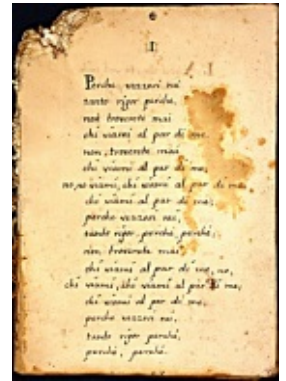 I
Perche vezzosi rai
tanto rigor perche,
non troverete mai
chi v'ami al par di me,
non, troverete mai
chi v'ami al par di me;
no, no v'ami, chi v'ami al par di me
chi v'ami al par di me;
perche vezzosi rai,
tanto rigor, perché, perché;
non, troverete mai
chi v'ami al par di me, no,
chi v'ami, chi v'ami al par di me;
chi v'ami al par di me;
perche vezzosi rai,
tanto rigor perché,
perché, perché.